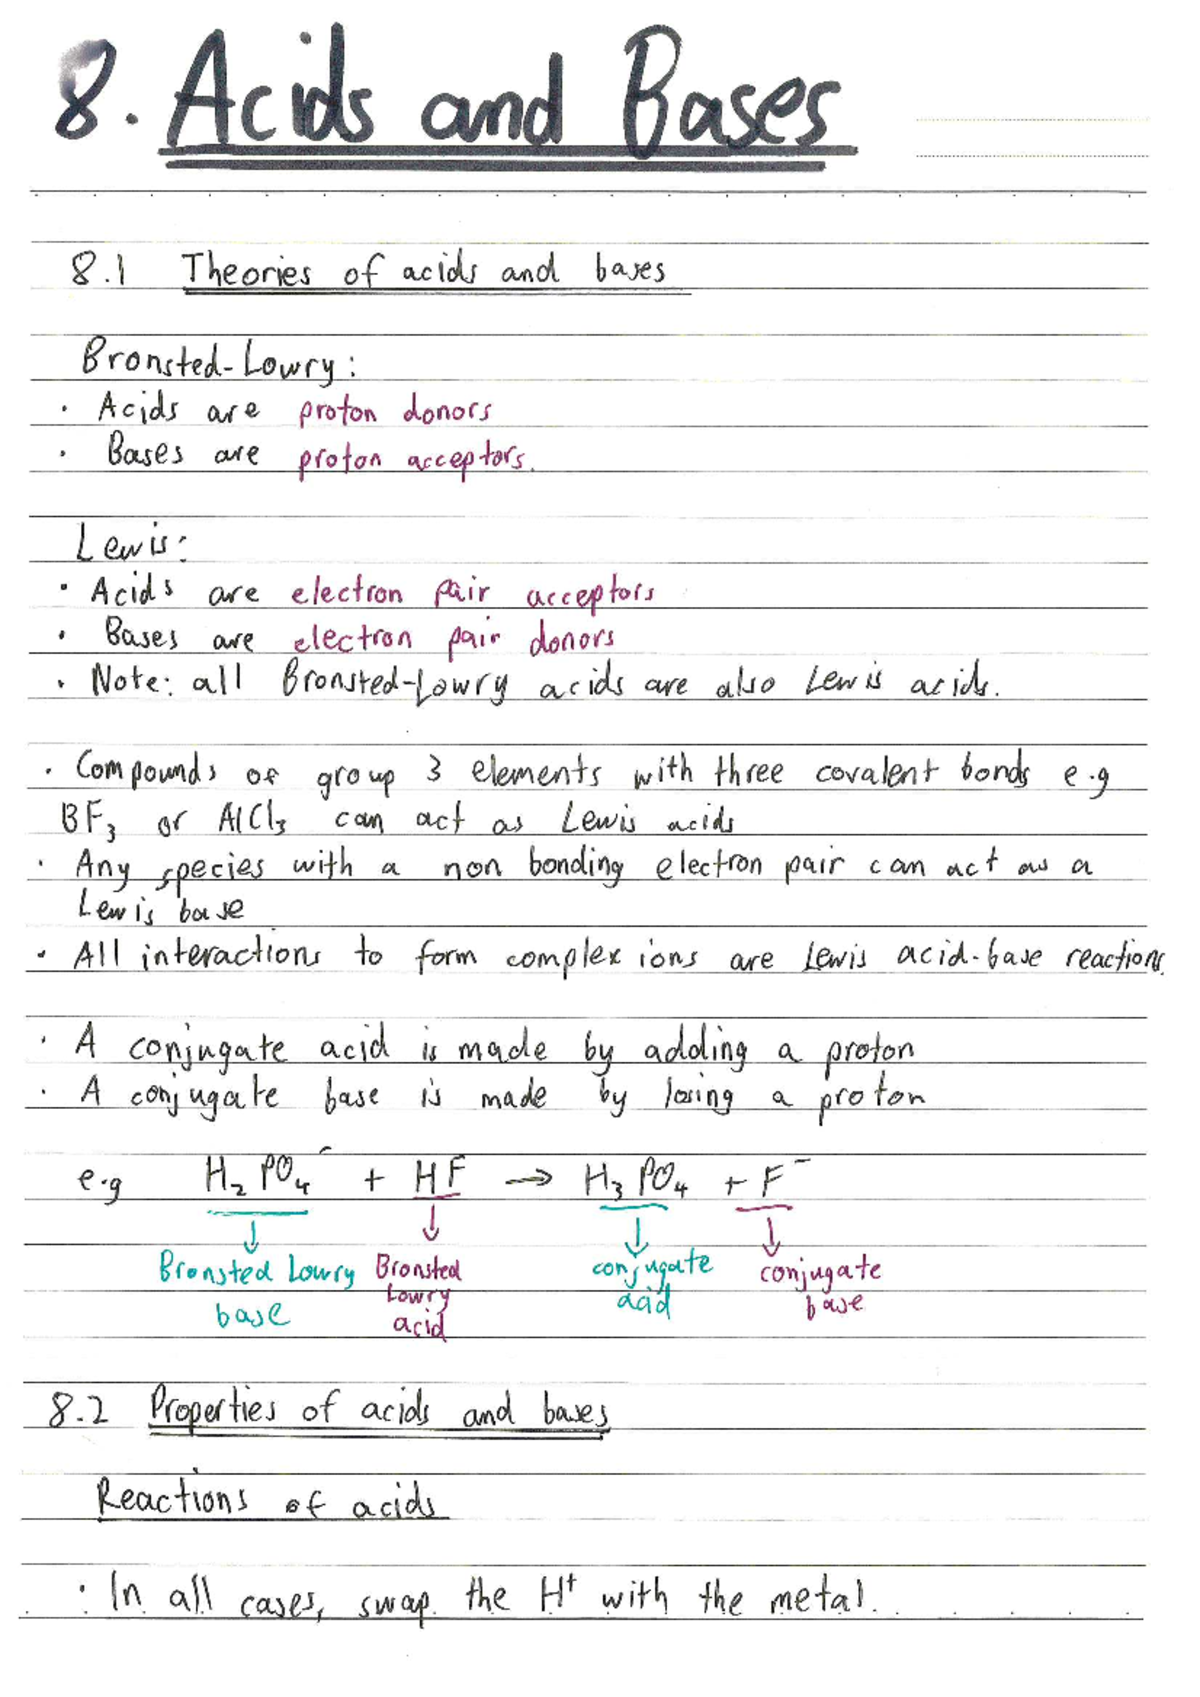 8. Acids and Bases
8.1 Theories of acids and bases
Bronsted-Lowry:
· Acids are proton donors
· Bases are proton acceptors.
Lewis:
· Acids are electron pair acceptors
· Bases are electron pair donors
· Note: all Bronsted-Lowry acids are also Lewis acids.
· Compounds of group 3 elements with three covalent bonds e.g
BF₃ or AlCl₃ can act as Lewis acids
· Any species with a non bonding electron pair can act as a
Lewis base
· All interactions to form complex ions are Lewis acid-base reactions.
· A conjugate acid is made by adding a proton
· A conjugate base is made by losing a proton
e.g H₂PO₄⁻ + HF → H₃PO₄ + F⁻
↓ ↓ ↓ ↓
Bronsted Lowry Bronsted conjugate conjugate
base Lowry acid base
acid
8.2 Properties of acids and bases
Reactions of acids
· In all cases, swap the H⁺ with the metal.